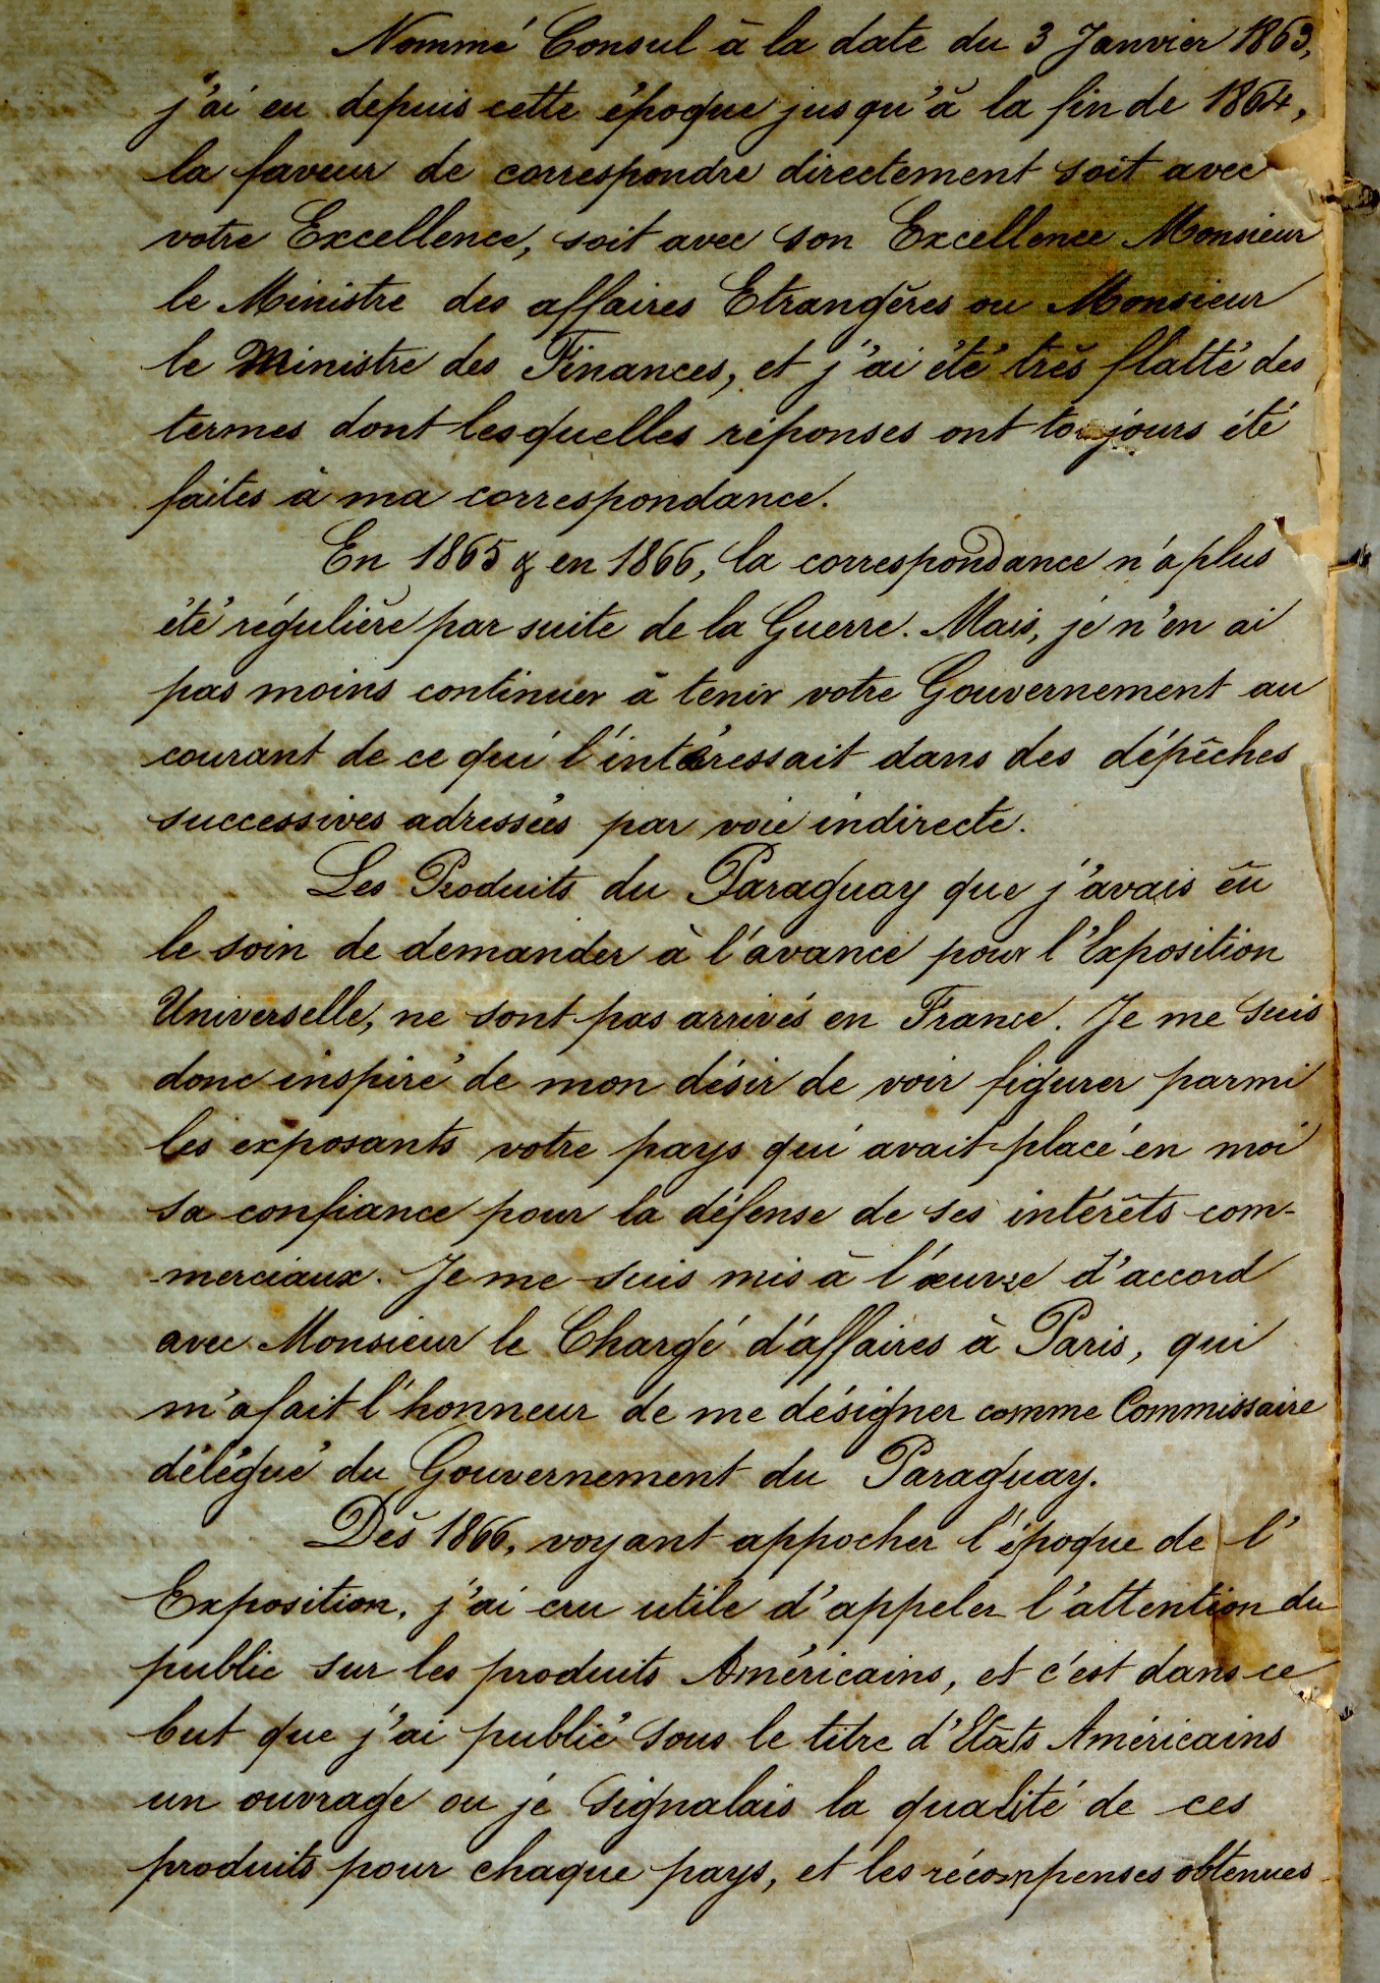 Nommé Consul à la date du 3 Janvier 1863,
j'ai eu depuis cette époque jusqu'à la fin de 1864,
la faveur de correspondre directement soit avec
votre Excellence, soit avec son Excellence Monsieur
le Ministre des affaires Etrangères ou Monsieur
le Ministre des Finances, et j'ai été très flatté des
termes dont lesquelles réponses ont toujours été
faites à ma correspondance.
En 1865 & en 1866, la correspondance n'a plus
été régulière par suite de la Guerre. Mais, je n'en ai
pas moins continuer à tenir votre Gouvernement au
courant de ce qui l'intéressait dans des dépêches
successives adressées par voie indirecte.
Les Produits du Paraguay que j'avais eû
le soin de demander à l'avance pour l'Exposition
Universelle, ne sont pas arrivés en France. Je me suis
donc inspiré de mon désir de voir figurer parmi
les exposants votre pays qui avait placé en moi
sa confiance pour la défense de ses intérêts com-
merciaux. Je me suis mis à l'œuvre d'accord
avec Monsieur le Chargé d'affaires à Paris, qui
m'a fait l'honneur de me désigner comme Commissaire
délégué du Gouvernement du Paraguay.
Dès 1866, voyant appocher l'époque de l'
Exposition, j'ai cru utile d'appeler l'attention du
public sur les produits Américains, et c'est dans ce
but que j'ai publié sous le titre d'Etats Américains
un ouvrage ou je signalais la qualité de ces
produits pour chaque pays, et les récompenses obtenues